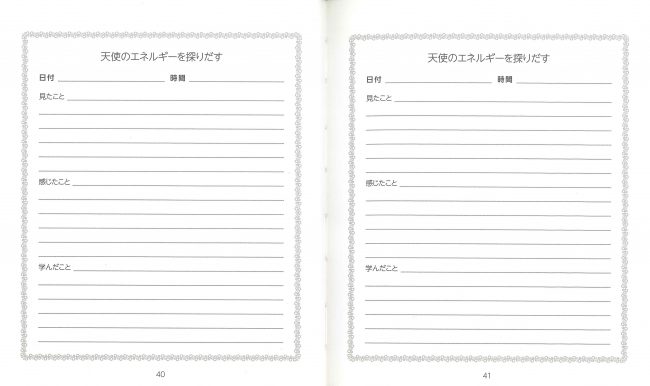 天使のエネルギーを探りだす
日付 時間
見たこと
感じたこと
学んだこと
40
天使のエネルギーを探りだす
日付 時間
見たこと
感じたこと
学んだこと
41